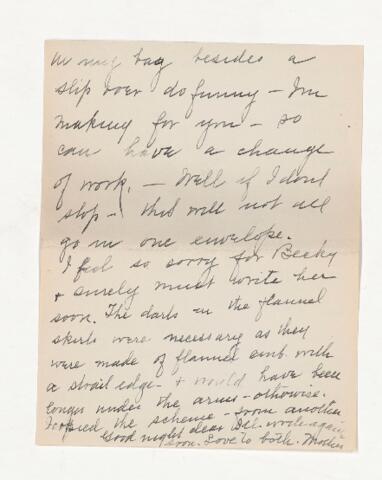 in my bag besides a
slip over do funny - I'm
making for you - so
can have a change
of work. - Well if I dont
stop - this will not all
go in one envelope.
I feel so sorry for Becky
+ surely must write her
soon. The darts in the flannel
skirts were necessary as they
were made of flannel emb. with
a strait edge - + would have been
longer under the arms - otherwise.
I copied the scheme - from another
Good night dear I'll write again
soon. Love to both. Mother